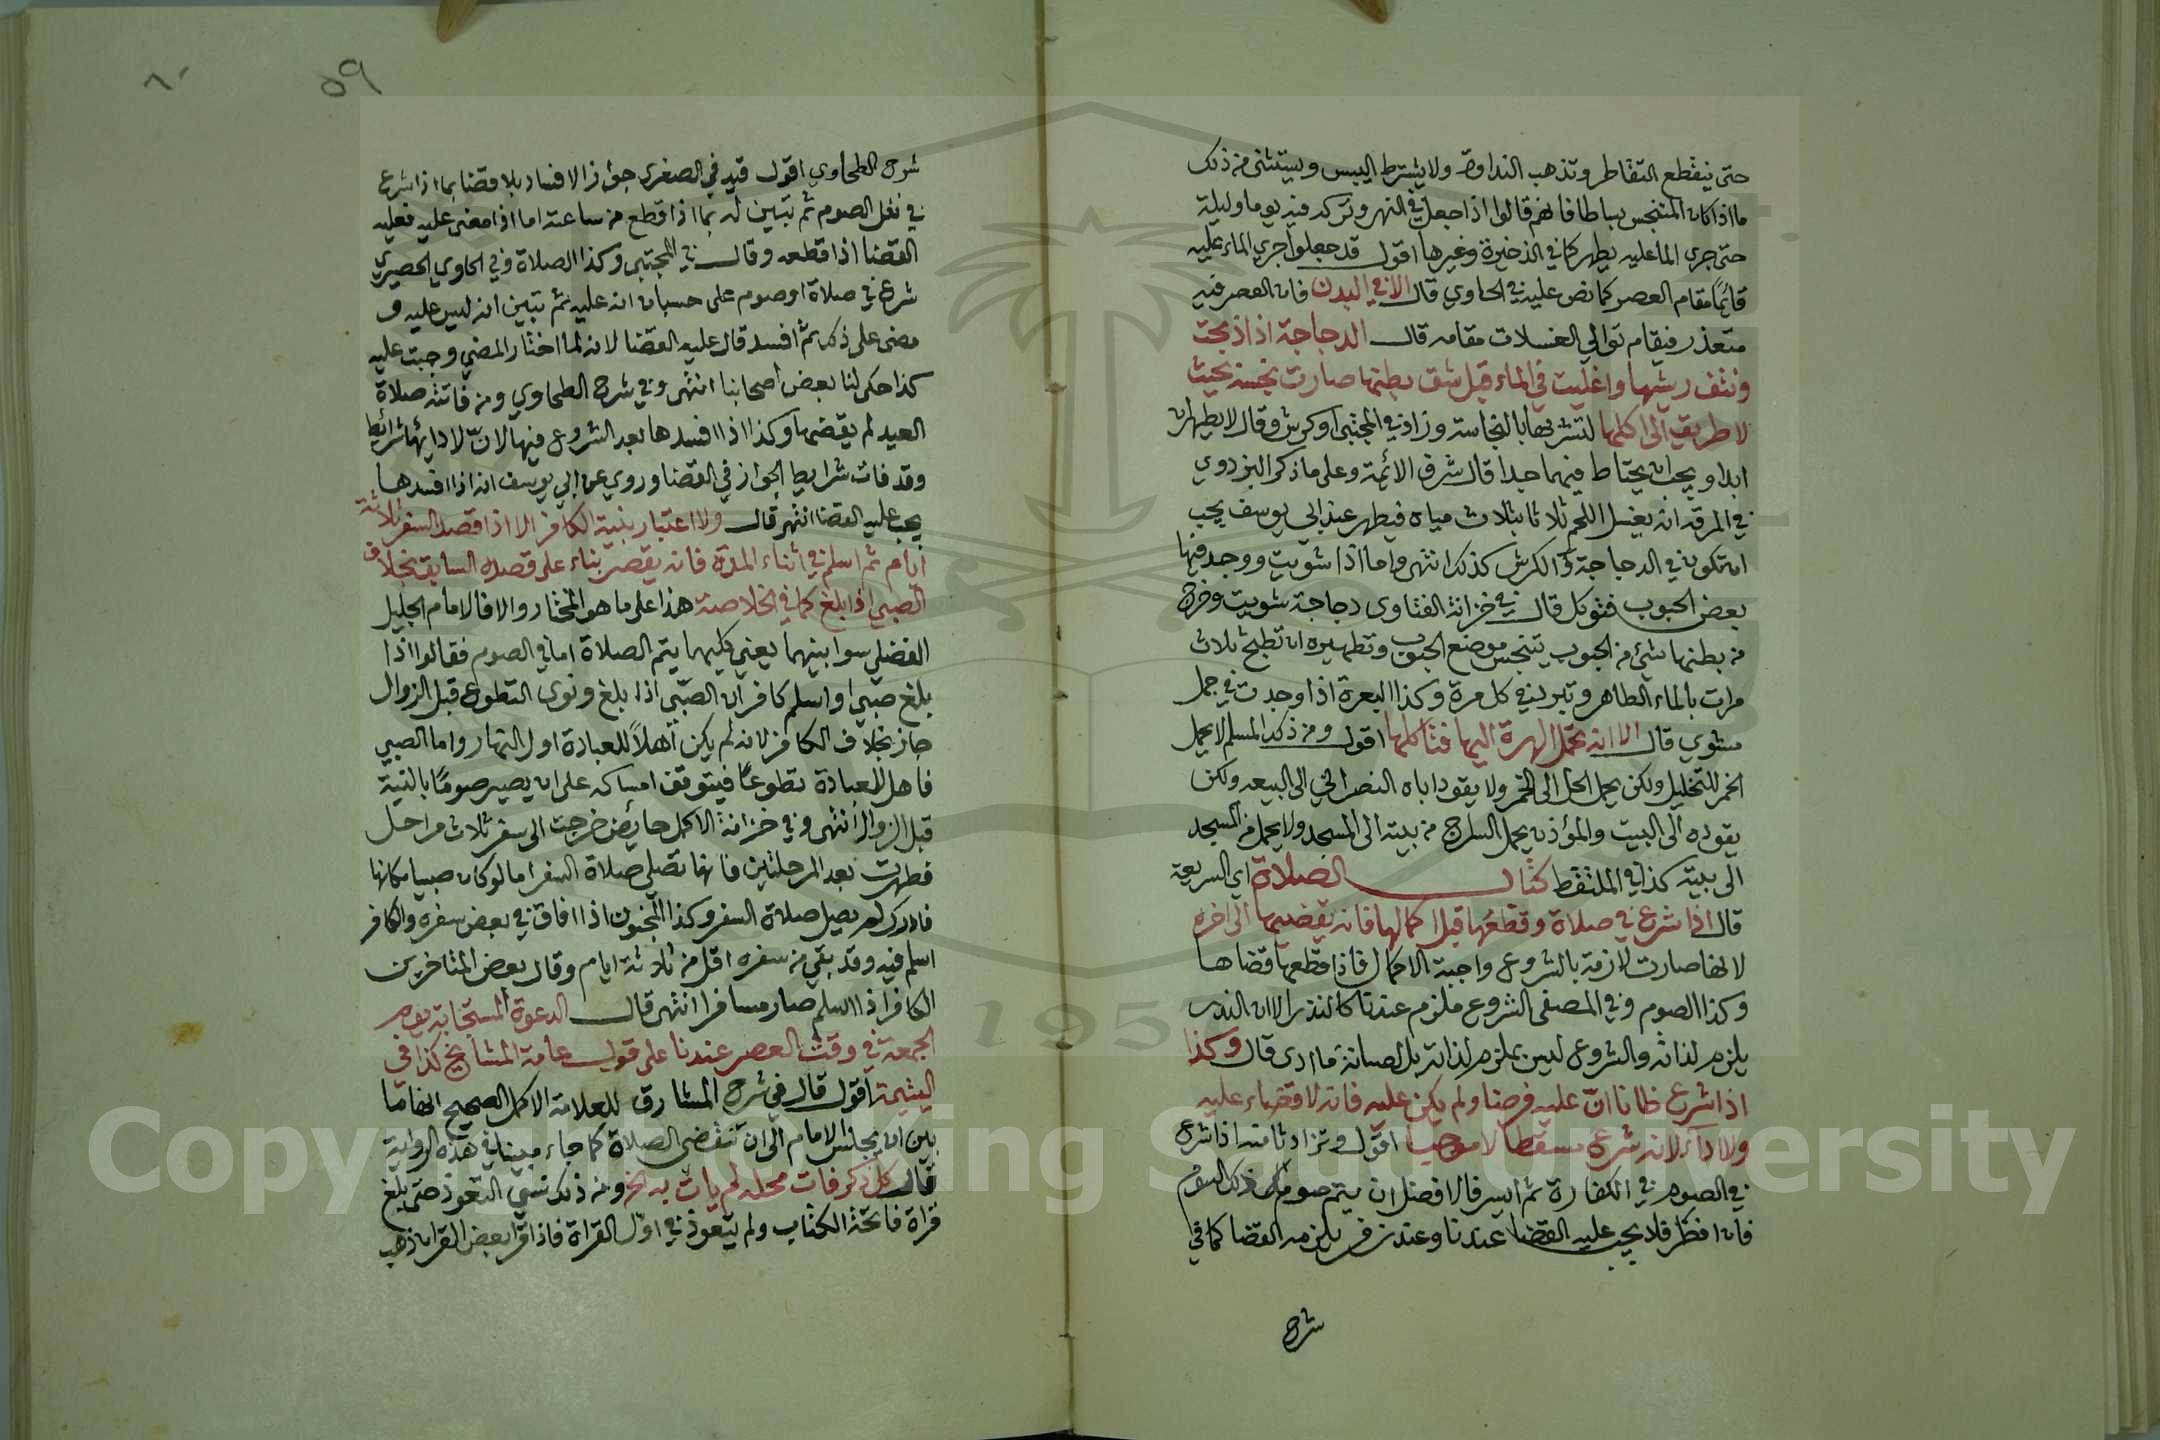 حتى ينقطع التقاطر وتذهب النداوة ولا يشترط اليبس ويستثنى من ذلك
ما اذا كان المتنجس بساطا فانهم قالوا اذا جعل في النهر وترك فيه يوما وليلة
حتى جرى الماء عليه يطهر كما في الذخيرة وغيرها اقول قد جعلوا جري الماء عليه
قائمًا مقام العصر كما نص عليه في الحاوي قال الا في البدن فان العصر فيه
متعذر فيقام توالي الغسلات مقامه قال الدجاجة اذا ذبحت
ونتف ريشها واغليت في الماء قبل شق بطنها صارت نجسة بحيث
لا طريق الى اكلها لتشربها بالنجاسة وزاد في المجتبى اوكرش وقال لا يطهران
ابدا ويجب ان يحتاط فيهما جدا قال شرف الائمة وعلى ما ذكر البزدوي
في المرقة انه يغسل اللحم ثلاثا بثلاث مياه فيطهر عند ابي يوسف يجب
ان تكون في الدجاجة والكرش كذلك انتهى واما اذا شويت ووجد فيها
بعض الحبوب فتوكل قال في خزانة الفتاوى دجاجة شويت وخرج
من بطنها شئ من الحبوب يتنجس موضع الحبوب وتطهيره ان تطبخ ثلاث
مرات بالماء الطاهر وتبرد في كل مرة وكذا البعرة اذا وجدت في حمل
مشوي قال الا انه تحمل الهرة اليها فتاكلها اقول ومن ذلك المسلم لا يحمل
الخمر للتخليل ولكن يحمل الخل الى الخمر ولا يقود اباه النصراني الى البيعه ولكن
يقوده الى البيت والمؤذن يحمل السراج من بيته الى المسجد ولا يحمل من المسجد
الى بيته كذا في الملتقط كتاب الصلاة اي الشريعة
قال اذا شرع في صلاة وقطعها قبل اكمالها فانه يقضيها الى اخره
لانها صارت لازمة بالشروع واجبة الاكمال فاذا قطعها قضاها
وكذا الصوم وفي المصفى الشروع ملزم عندنا كالنذر الا ان النذر
يلزم لذاته والشروع ليس بملزم لذاته بل لصيانة ما ادى قال وكذا
اذا شرع ظانا انّ عليه فرضا ولم يكن عليه فانه لا قضاء عليه
ولا اداء لانه شرع مسقطا لا موجبا اقول وتزاد ثامنه اذا شرع
في الصوم في الكفارة ثم ايسر فالافضل ان يتم صوم ذلك اليوم
فان افطر فلا يجب عليه القضا عندنا وعند زفر يلزمه القضا كما في
شرح
٥٩
٦٠
شرح الطحاوي اقول قيد في الصغرى جواز الافساد بلا قضا بما اذا شرع
في نفل الصوم ثم تبين له بما اذا قطع من ساعته اما اذا مضى عليه فعليه
القضا اذا قطعه وقال في المجتبى وكذا الصلاة وفي الحاوي الحصيري
شرع في صلاة او صوم على حسبان انه عليه ثم تبين انه ليس عليه و
مضى على ذلك ثم افسد قال عليه القضا لانه لما اختار المضي وجبت عليه
كذا حكى لنا بعض اصحابنا انتهى وفي شرح الطحاوي ومن فاتته صلاة
العيد لم يقضها وكذا اذا افسدها بعد الشروع فيها لانّ لادائها شرائط
وقد فات شرايط الجواز في القضا وروي عن ابي يوسف انه اذا افسدها
يجب عليه القضا انتهى قال ولا اعتبار بنية الكافر الا اذا قصد السفر ثلاثة
ايام ثم اسلم في اثناء المدة فانه يقصر بناء على قصده السابق بخلاف
الصبي اذا بلغ كما في الخلاصة هذا على ما هو المختار والا فالامام الجليل
الفضلي سوا بينهما يعني كليهما يتم الصلاة اما في الصوم فقالوا اذا
بلغ صبي او اسلم كافر ان الصبّى اذا بلغ ونوى التطوع قبل الزوال
جاز بخلاف الكافر لانه لم يكن اهلاً للعبادة اول النهار واما الصبي
فاهل للعبادة تطوعًا فيتوقف امساكه على ان يصير صومًا بالنية
قبل الزوال انتهى وفي خزانة الاكمل حائض خرجت الى سفر ثلاث مراحل
فطهرت بعد المرحلتين فانها تصلي صلاة السفر اما لو كان صبيا مكانها
فادرك لم يصل صلاة السفر وكذا المجنون اذا افاق في بعض سفره والكافر
اسلم فيه وقد بقي من سفره اقل من ثلاثة ايام وقال بعض المتاخرين
الكافر اذا اسلم صار مسافرا انتهى قال الدعوة المستجابة يوم
الجمعة في وقت العصر عندنا على قول عامة المشايخ كذا في
اليتيمة اقول قال في شرح المشارق للعلامة الاكمل الصحيح انها ما
بين ان يجلس الامام الى ان تنقضي الصلاة كما جاء مبينا في هذه الرواية
قال كل ذكر فات محله لم يات به الخ ومن ذلك نسي التعوذ حتى بلغ
قراة فاتحة الكتاب ولم يتعوذ في اوّل القراة فاذا قرا بعض القران ذهب
Copyright © King Saud University
1957